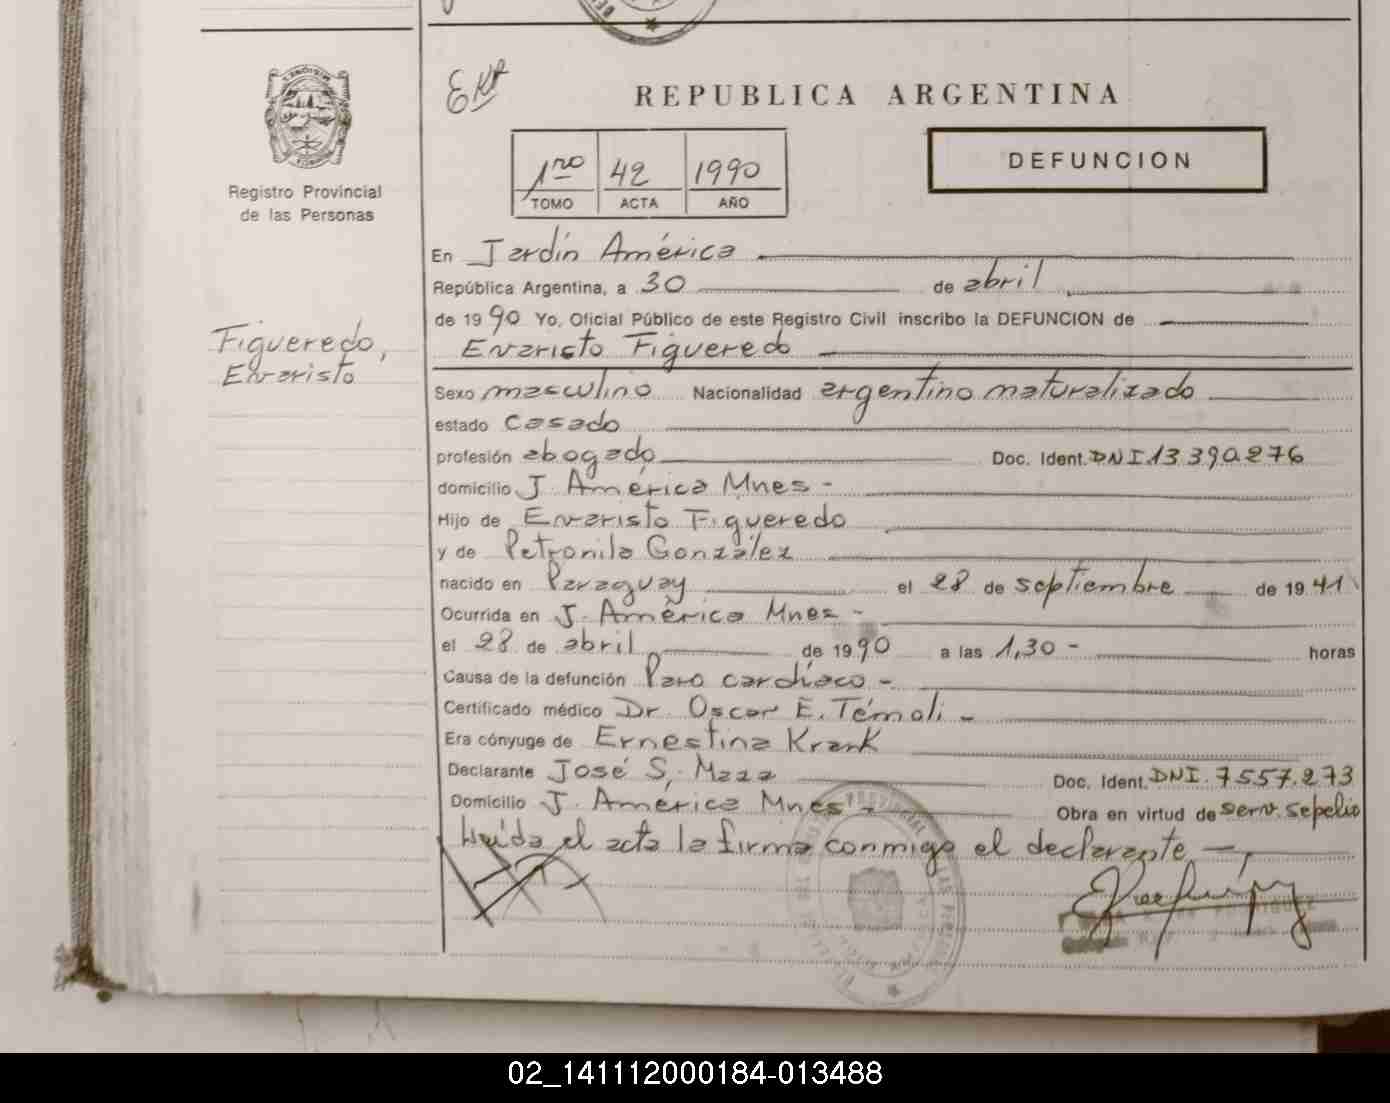 EXP
REPUBLICA ARGENTINA
1ro 42 1990
TOMO ACTA AÑO
DEFUNCION
Registro Provincial
de las Personas
Figueredo,
Evaristo
En Jardín América
República Argentina, a 30 de abril
de 1990 Yo, Oficial Público de este Registro Civil inscribo la DEFUNCION de
Evaristo Figueredo
Sexo masculino Nacionalidad argentino naturalizado
estado casado
profesión abogado Doc. Ident. DNI 13.390.276
domicilio J. América Mnes -
Hijo de Evaristo Figueredo
y de Petronila González
nacido en Paraguay el 28 de septiembre de 1941
Ocurrida en J. América Mnes -
el 28 de abril de 1990 a las 1,30 - horas
Causa de la defunción Paro cardíaco -
Certificado médico Dr. Oscar E. Témoli -
Era cónyuge de Ernestina Krank
Declarante José S. Maza Doc. Ident. DNI. 7557.273
Domicilio J. América Mnes - Obra en virtud de serv. sepelio
Leída el acta la firma conmigo el declarante
02_141112000184-013488